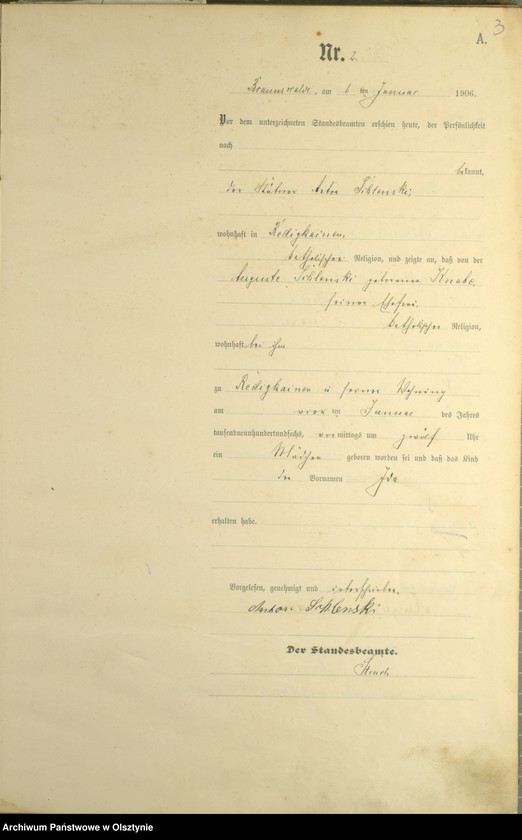 A.
3
Nr. 2.
Braunswalde, am 6 ten Januar 1906.
Vor dem unterzeichneten Standesbeamten erschien heute, der Persönlichkeit
nach
bekannt,
der
wohnhaft in Redigkainen,
katholischer Religion, und zeigte an, daß von der
Auguste geborenen Knabe,
seiner Ehefrau
katholischer Religion,
wohnhaft bei ihm
zu Redigkainen in seiner Wohnung
am vier ten Januar des Jahres
tausendneunhundertundsechs, vormittags um zwölf Uhr
ein Mädchen geboren worden sei und daß das Kind
den Vornamen Ida
erhalten habe.
Vorgelesen, genehmigt und unterschrieben.
Anton
Der Standesbeamte.
Archiwum Państwowe w Olsztynie